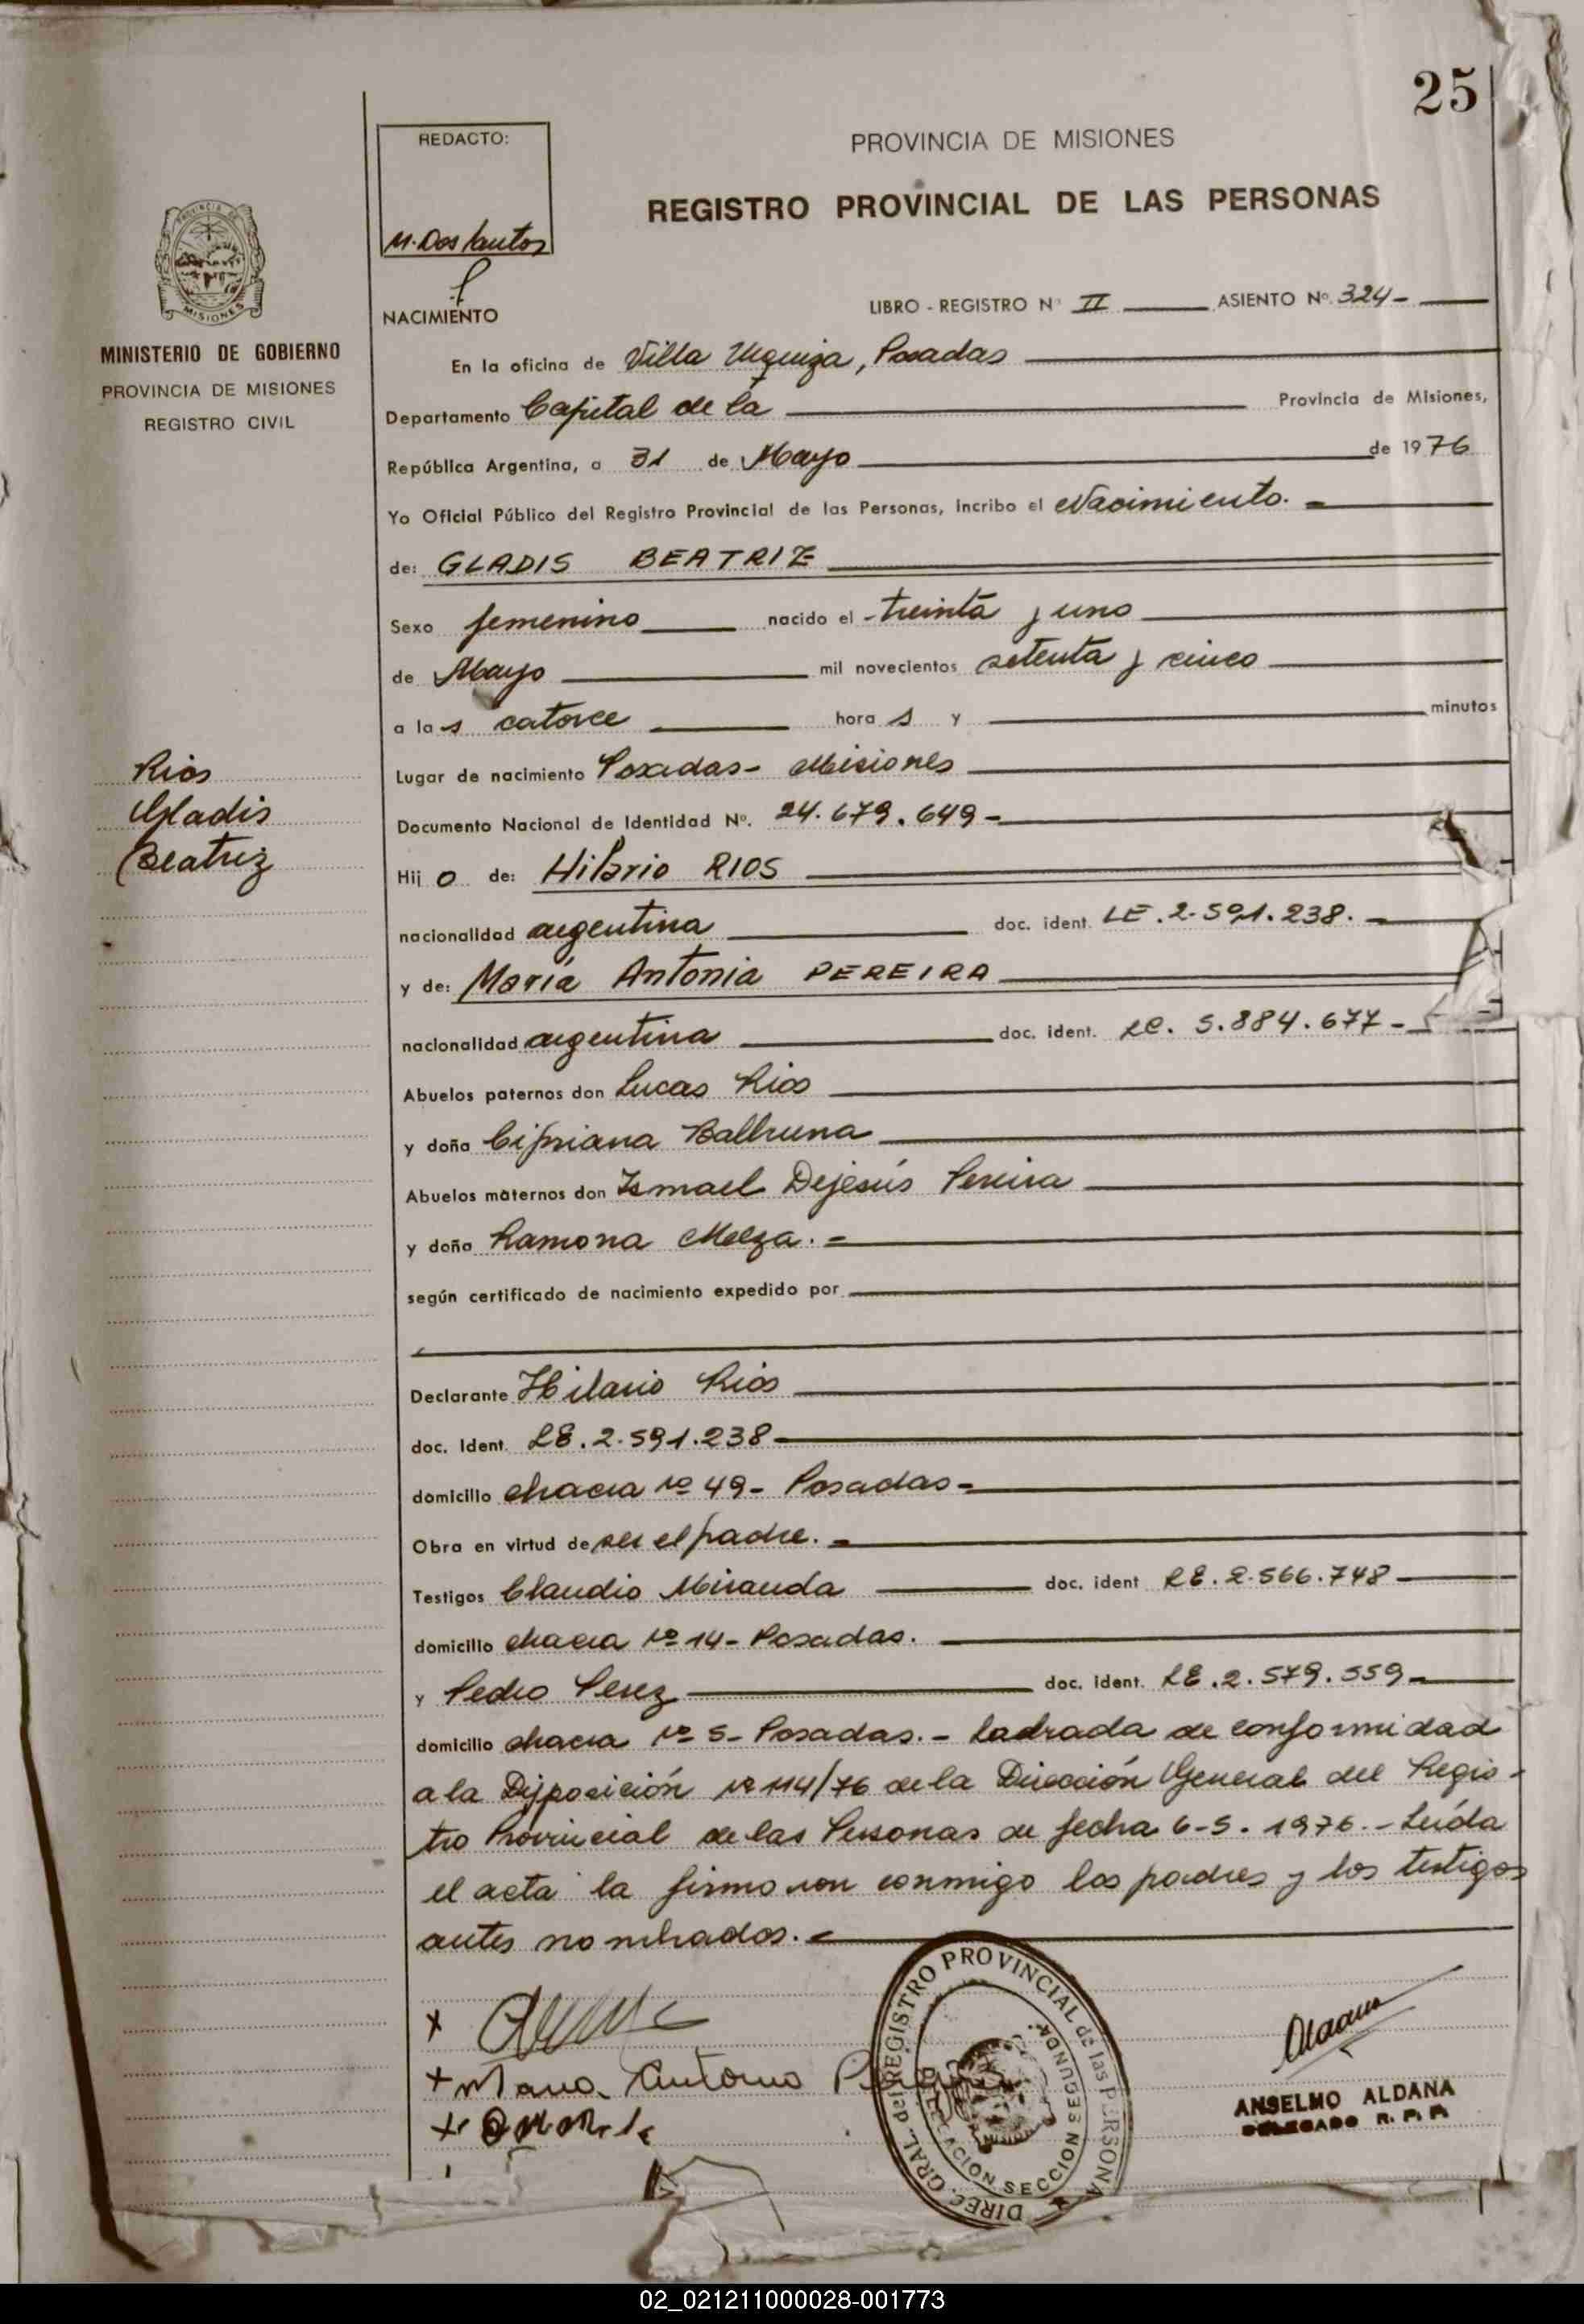 25
REDACTO:
M. Dos Santos
PROVINCIA DE MISIONES
REGISTRO PROVINCIAL DE LAS PERSONAS
PROVINCIA DE
MISIONES
MINISTERIO DE GOBIERNO
PROVINCIA DE MISIONES
REGISTRO CIVIL
NACIMIENTO
LIBRO - REGISTRO Nº II ASIENTO Nº 324-
En la oficina de Villa Urquiza, Posadas
Departamento Capital de la Provincia de Misiones,
República Argentina, a 31 de Mayo de 1976
Yo Oficial Público del Registro Provincial de las Personas, incribo el Nacimiento.-
de: GLADIS BEATRIZ
Sexo femenino nacido el -treinta y uno
de Mayo mil novecientos setenta y cinco
a las catorce horas y minutos
Lugar de nacimiento Posadas- Misiones
Documento Nacional de Identidad Nº. 24.679.649-
Rios
Gladis
Beatriz
Hijo de: Hilario RIOS
nacionalidad argentina doc. ident. LE.2.591.238.-
y de: María Antonia PEREIRA
nacionalidad argentina doc. ident. LC. 5.884.677-
Abuelos paternos don Lucas Rios
y doña Cipriana Balbuena
Abuelos maternos don Ismael Dejesús Pereira
y doña Ramona Meza.-
según certificado de nacimiento expedido por
Declarante Hilario Rios
doc. Ident. LE.2.591.238-
domicilio chacra Nº 49- Posadas-
Obra en virtud de ser el padre.-
Testigos Claudio Miranda doc. ident LE.2.566.748
domicilio chacra Nº 14- Posadas.
y Pedro Perez doc. ident. LE.2.579.559-
domicilio chacra Nº 5- Posadas.- Labrada de conformidad
a la Disposición Nº 114/76 de la Dirección General del Regis-
tro Provincial de las Personas de fecha 6-5-1976.- Leída
el acta la firmaron conmigo los padres y los testigos
antes nombrados.-
x
+ Maria Antonia
DIREC. GRAL. del REGISTRO PROVINCIAL de las PERSONAS
SECCION SEGUNDA
MISIONES
ANSELMO ALDANA
DELEGADO R. P. P.
02_021211000028-001773